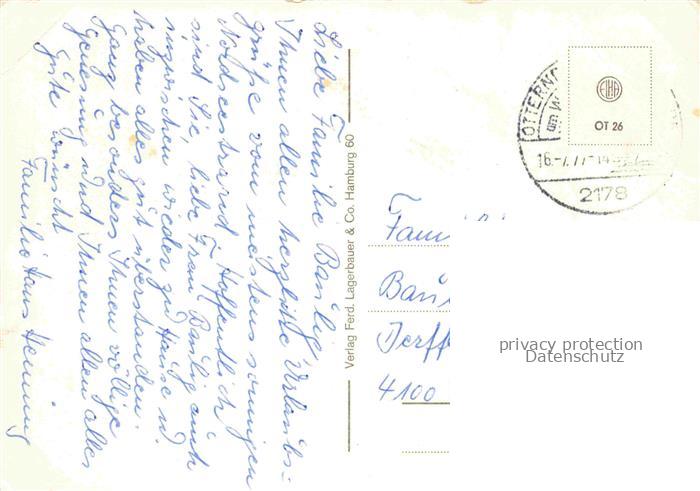 Liebe Familie Baulig
Ihnen allen herzliche Urlaubs-
grüße vom meistens sonnigen
Nordseestrand. Hoffentlich
sind Sie, liebe Frau Baulig auch
inzwischen wieder zu Hause u.
haben alles gut überstanden.
Ganz besonders Ihnen völlige
Genesung und Ihnen allen alles
Gute wünscht
Familie Hans Henning
Verlag Ferd. Lagerbauer & Co. Hamburg 60
OT 26
OTTERN
16.-7.77-14
2178
Fam
Bau
Jerff
4100
privacy protection
Datenschutz